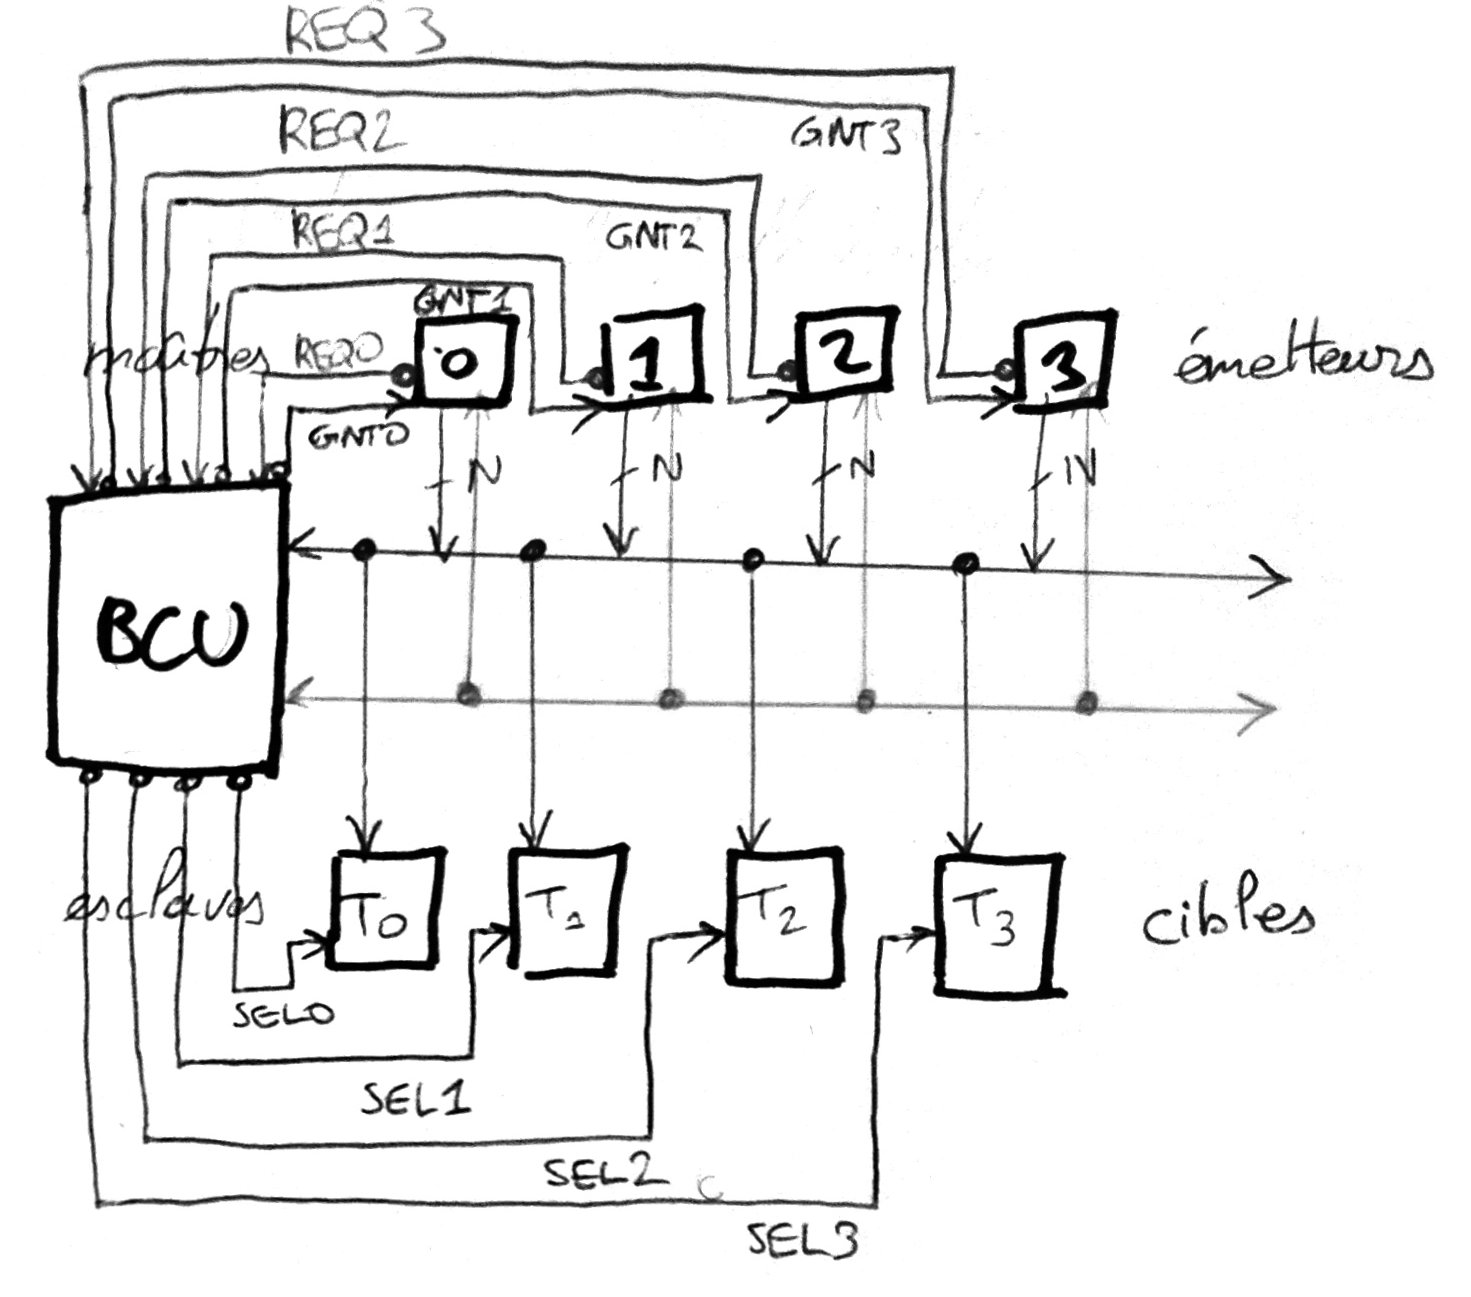 REQ3
REQ2
GNT3
REQ1
GNT2
GNT1
REQ0
0
1
2
3
émetteurs
GNT0
N
N
N
N
BCU
esclaves
T0
T1
T2
T3
cibles
SEL0
SEL1
SEL2
SEL3